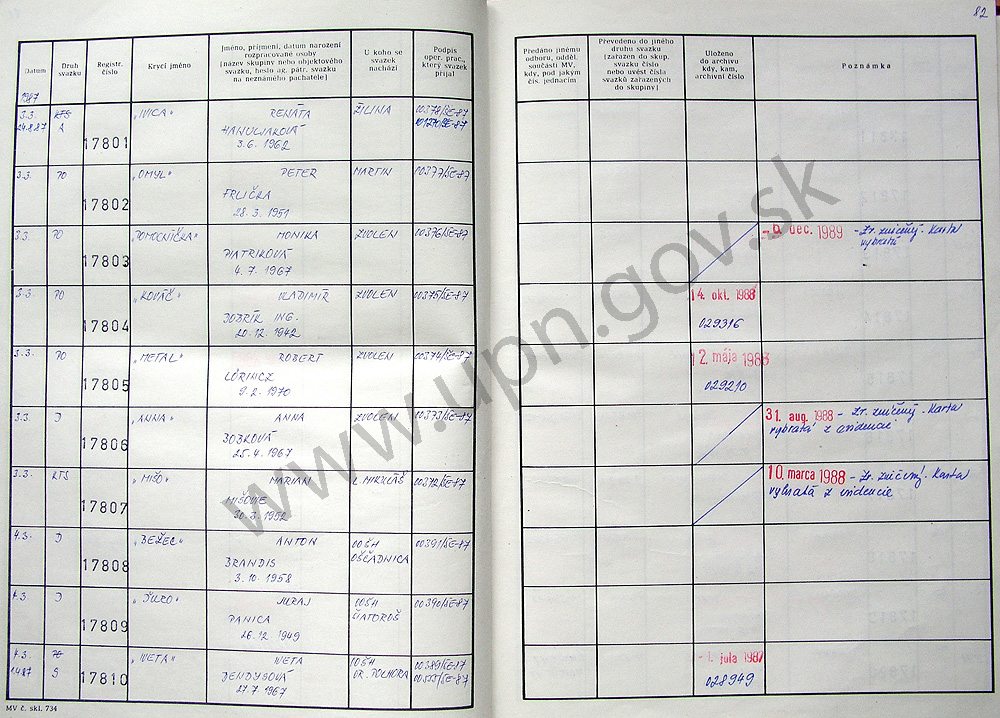 82
Datum
Druh svazku
Registr. číslo
Krycí jméno
Jméno, příjmení, datum narození
rozpracované osoby
(název skupiny nebo objektového
svazku, heslo ag. pátr. svazku
na neznámého pachatele)
U koho se
svazek
nachází
Podpis
oper. prac.,
který svazek
přijal
Předáno jinému
odboru, odděl.
součásti MV,
kdy, pod jakým
čís. jednacím
Převedeno do jiného
druhu svazku
(zařazen do skup.
svazku číslo
nebo uvést čísla
svazků zařazených
do skupiny)
Uloženo
do archivu
kdy, kam,
archivní číslo
Poznámka
1987
3.3. KTS "IVICA" RENÁTA ŽILINA 00378/SE-87
24.8.87 A
HANULJAKOVÁ
17801 3.6. 1962
3.3. PO "OMYL" PETER MARTIN 00377/SE-87
FRLIČKA
17802 28. 3. 1951
3.3. PO "POMOCNÍČKA" MONIKA ZVOLEN 00376/SE-87
PIATRIKOVÁ
17803 4. 7. 1967
- 6. dec. 1989 - Zv. zničený. Karta
vybratá
3.3. PO "KOVÁČ" VLADIMÍR ZVOLEN 00375/SE-87
BOBRÍK ING.
17804 20. 12. 1942
14. okt. 1988
029316
3.3. PO "METAL" ROBERT ZVOLEN 00374/SE-87
LÖRINCZ
17805 9. 2. 1970
12. mája 1988
029210
3.3 D "ANNA" ANNA ZVOLEN 00373/SE-87
BOBKOVÁ
17806 25. 4. 1967
31. aug. 1988 - Zv. zničený. Karta
vybratá z evidencie
3.3. KTS "MIŠO" MARIAN L. MIKULÁŠ 00372/SE-87
17807 30. 3. 1952
10. marca 1988 - Zv. zničený. Karta
vybratá z evidencie
4.3. D "BEŽEC" ANTON OOSH 00391/SE-87
OŠČADNICA
BRANDIS
17808 3. 10. 1958
4.3. D "ĎURO" JURAJ OOSH 00390/SE-87
ŠIATOROŠ
PANICA
17809 26. 12. 1949
4.3. PO "IVETA" IVETA OOSH 00389/SE-87
S OR. POLHORA 00555/SE-87
BENDYSOVÁ
17810 27. 7. 1967
- 1. júla 1987
028949
MV č. skl. 734
www.upn.gov.sk